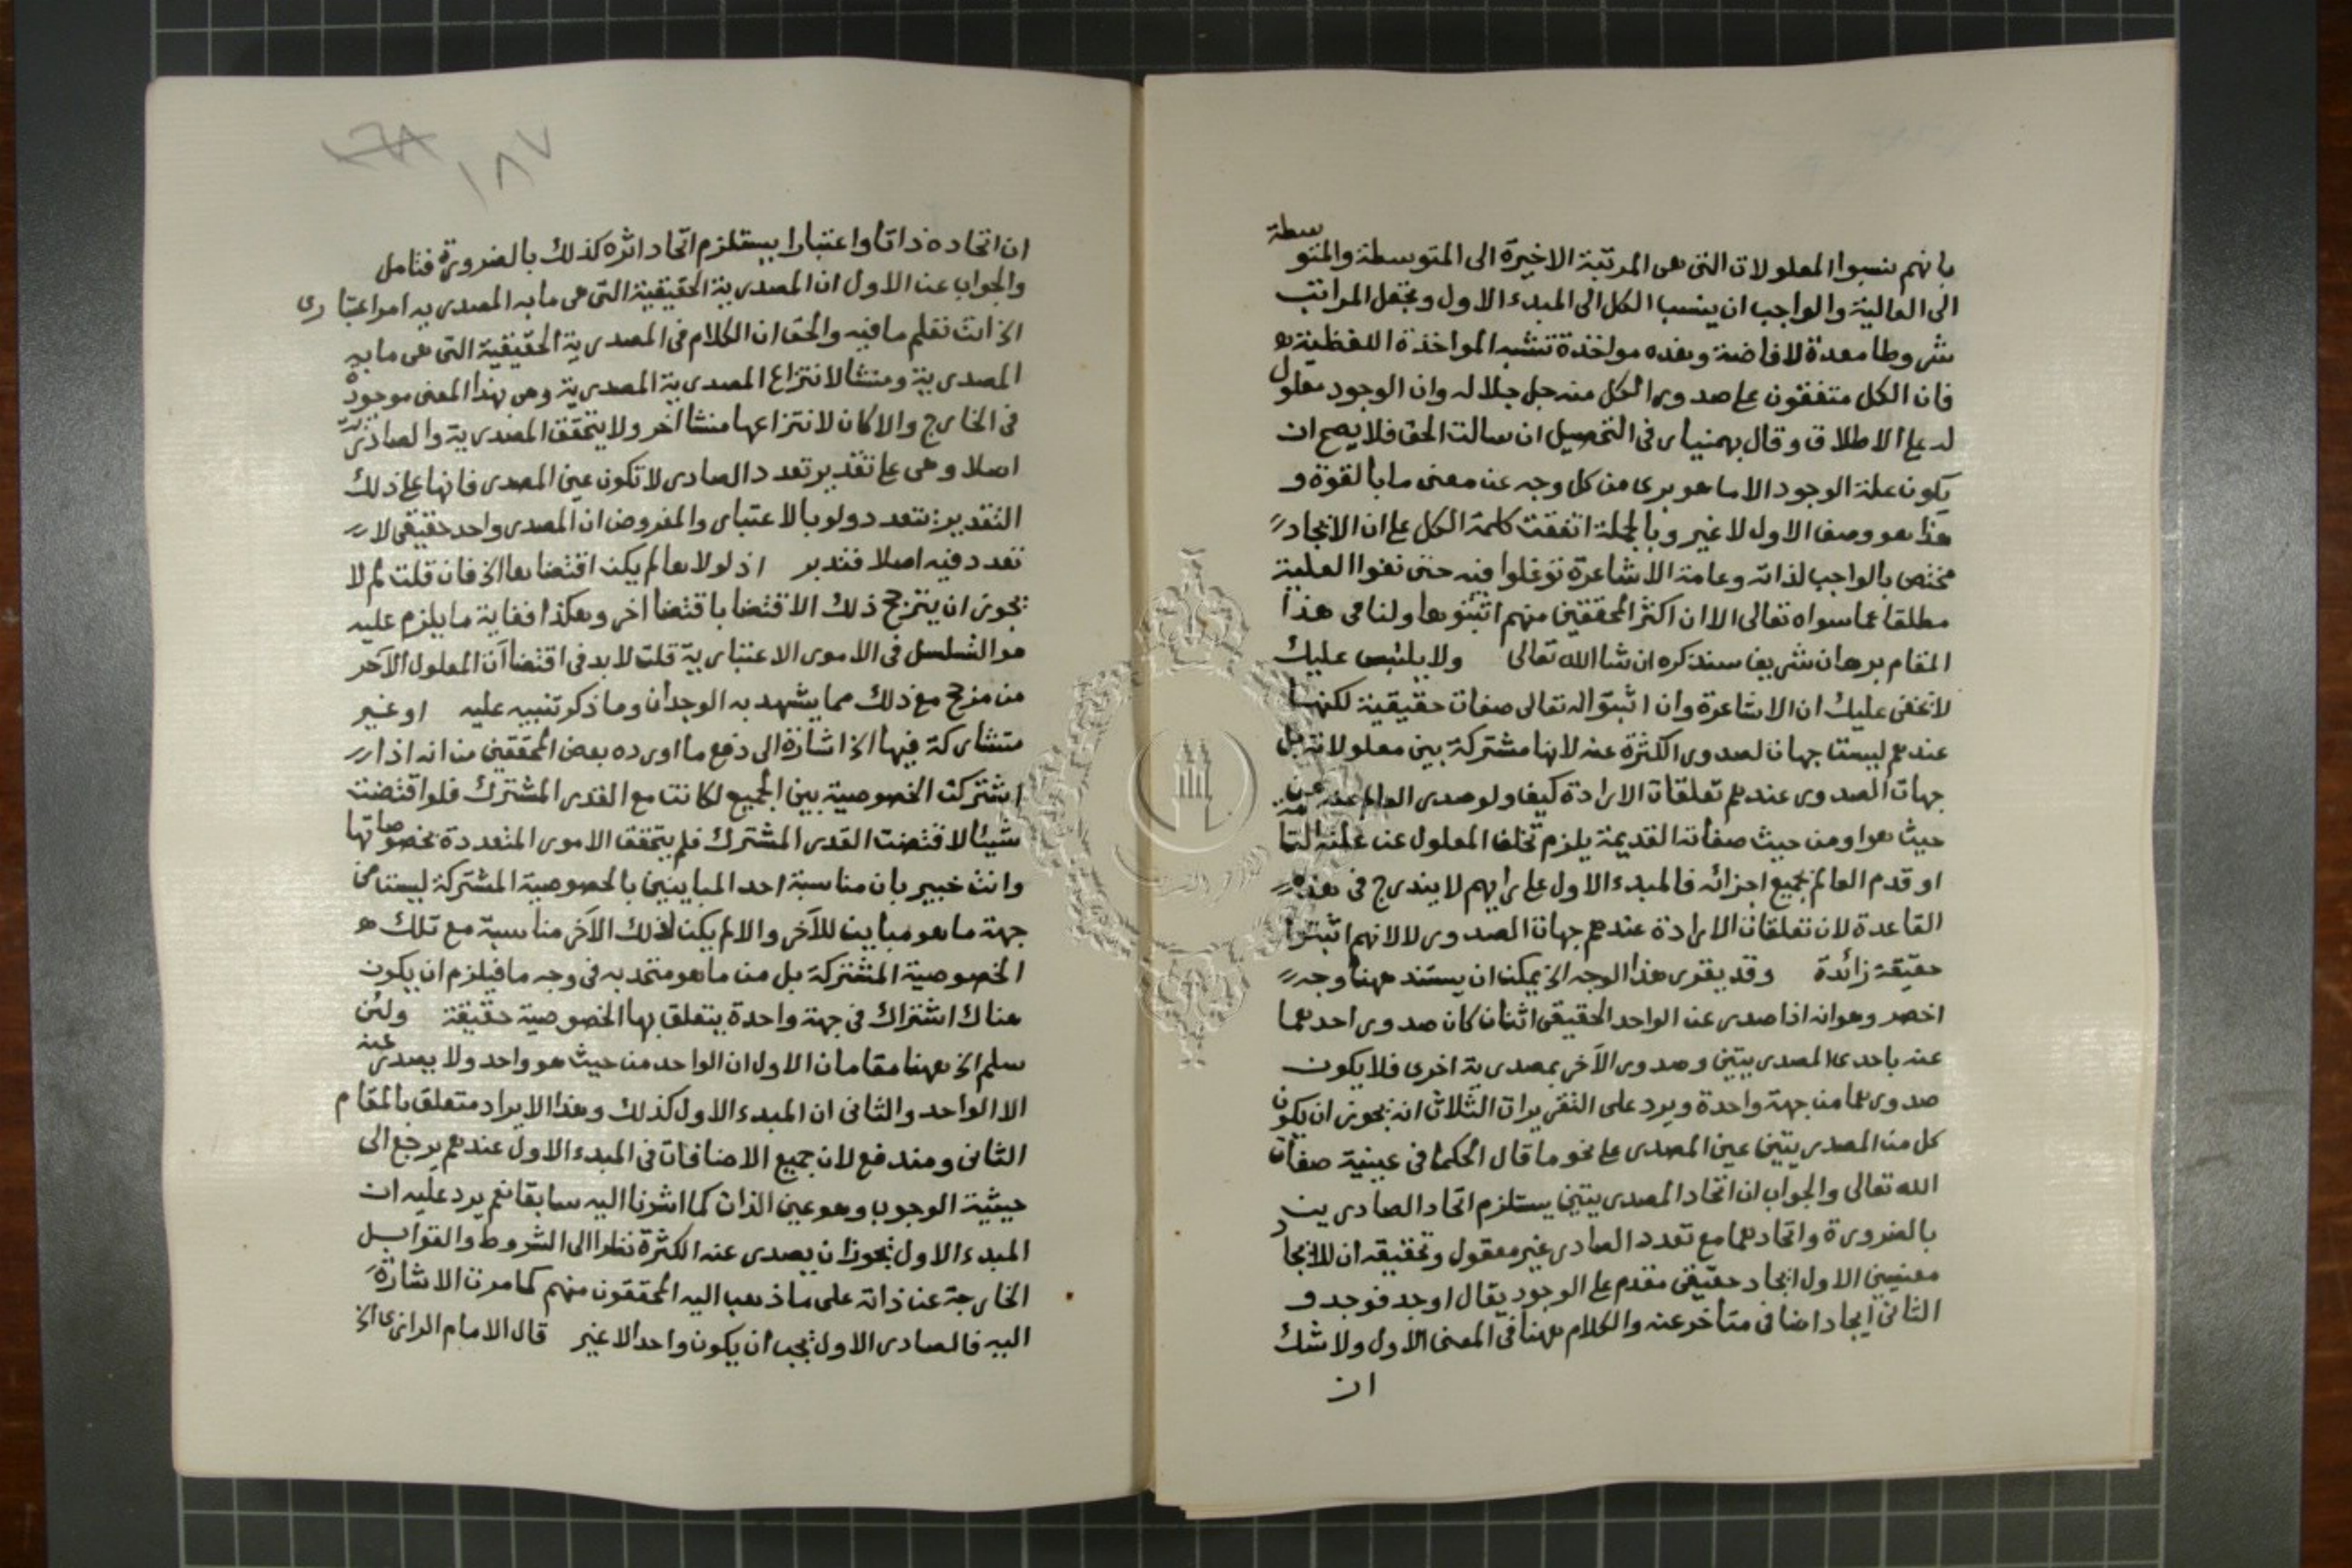 بانهم نسبوا المعلولات التى هى المرتبة الاخيرة الى المتوسطة والمتوسطة
الى العالية والواجب ان ينسب الكل الى المبدء الاول وتجعل المراتب
شروطا معدة لافاضة وهذه مواخذة تشبه المواخذة اللفظية
فان الكل متفقون على صدور الكل منه جل جلاله وان الوجود معلول
له على الاطلاق وقال بهمنيار فى التحصيل ان سالت الحق فلا يصح ان
يكون علة الوجود الا ما هو برى من كل وجه عن معنى ما بالقوة و
هذا هو وصف الاول لا غير وبالجملة اتفقت كلمة الكل على ان الايجاد
مختص بالواجب لذاته وعامة الاشاعرة توغلوا فيه حتى نفوا العلية
مطلقا عما سواه تعالى الا ان اكثر المحققين منهم اثبتوها ولنا فى هذا
المقام برهان شريف سنذكره ان شا الله تعالى ولا يلتبس عليك
لا تخفى عليك ان الاشاعرة وان اثبتوا له تعالى صفات حقيقية لكنها
عندهم ليست جهات لصدور الكثرة عنه لانها مشتركة بين معلولاته بل
جهات الصدور عندهم تعلقات الارادة كيف ولو صدر العالم عنه من
حيث هو او من حيث صفاته القديمة يلزم تخلف المعلول عن علته التامة
او قدم العالم بجميع اجزائه فالمبدء الاول على رايهم لا يندرج فى هذه
القاعدة لان تعلقات الارادة عندهم جهات الصدور لا لانهم اثبتوا
حقيقة زائدة وقد يقرى هذا الوجه الخ يمكن ان يستند ههنا وجه
اخصر وهو انه اذا صدر عن الواحد الحقيقى اثنان كان صدور احدهما
عنه باحدى المصدريتين وصدور الآخر بمصدرية اخرى فلا يكون
صدورهما من جهة واحدة ويرد على التقريرات الثلاث انه يجوز ان يكون
كل من المصدريتين عين المصدر على نحو ما قال الحكما فى عينية صفات
الله تعالى والجواب ان اتحاد المصدريتين يستلزم اتحاد الصادرين
بالضرورة واتحادهما مع تعدد الصادر غير معقول وتحقيقه ان للايجاد
معنيين الاول ايجاد حقيقى مقدم على الوجود يقال اوجد فوجد و
الثانى ايجاد اضافى متأخر عنه والكلام ههنا فى المعنى الاول ولا شك
ان
١٨٧
ان اتحاده ذاتا واعتبارا يستلزم اتحاد اثره كذلك بالضرورة فتامل
والجواب عن الاول ان المصدرية الحقيقية التى هى ما به المصدرية امر اعتبارى
الخ انت تعلم ما فيه والحق ان الكلام فى المصدرية الحقيقية التى هى ما به
المصدرية ومنشا لانتزاع المصدرية المصدرية وهى بهذا المعنى موجودة
فى الخارج والا كان لانتزاعها منشا آخر ولا يتحقق المصدرية والصادرية
اصلا وهى على تقدير تعدد الصادر لا تكون عين المصدر فانها على ذلك
التقدير تتعدد ولو بالاعتبار والمفروض ان المصدر واحد حقيقى لا
تعدد فيه اصلا فتدبر اذ لولاها لم يكن اقتضاها الخ فان قلت لم لا
يجوز ان يترجح ذلك الاقتضا باقتضا اخر وهكذا فغاية ما يلزم عليه
هو التسلسل فى الامور الاعتبارية قلت لا بد فى اقتضاآن المعلول الآخر
من مرجح مع ذلك مما يشهد به الوجدان وما ذكر تنبيه عليه او غير
متشاركة فيها الخ اشارة الى دفع ما اورده بعض المحققين من انه اذا
اشتركت الخصوصية بين الجميع لكانت مع القدر المشترك فلو اقتضت
شيئا لاقتضت القدر المشترك فلم يتحقق الامور المتعددة بخصوصاتها
وانت خبير بان مناسبة احد المباينين بالخصوصية المشتركة ليست من
جهة ما هو مباين للآخر والا لم يكن لذلك الآخر مناسبة مع تلك
الخصوصية المشتركة بل من ما هو متحد به فى وجه ما فيلزم ان يكون
هناك اشتراك فى جهة واحدة يتعلق بها الخصوصية حقيقة ولئن
سلم الخ ههنا مقامان الاول ان الواحد من حيث هو واحد ولا يصدر عنه
الا الواحد والثانى ان المبدء الاول كذلك وهذا الايراد متعلق بالمقام
الثانى ومندفع لان جميع الاضافات فى المبدء الاول عندهم يرجع الى
حيثية الوجوب وهو عين الذات كما اشرنا اليه سابقا نعم يرد عليه ان
المبدء الاول يجوز ان يصدر عنه الكثرة نظرا الى الشروط والقوابل
الخارجة عن ذاته على ما ذهب اليه المحققون منهم كما مرت الاشارة
اليه فالصادر الاول يجب ان يكون واحدا لا غير قال الامام الرازى الخ